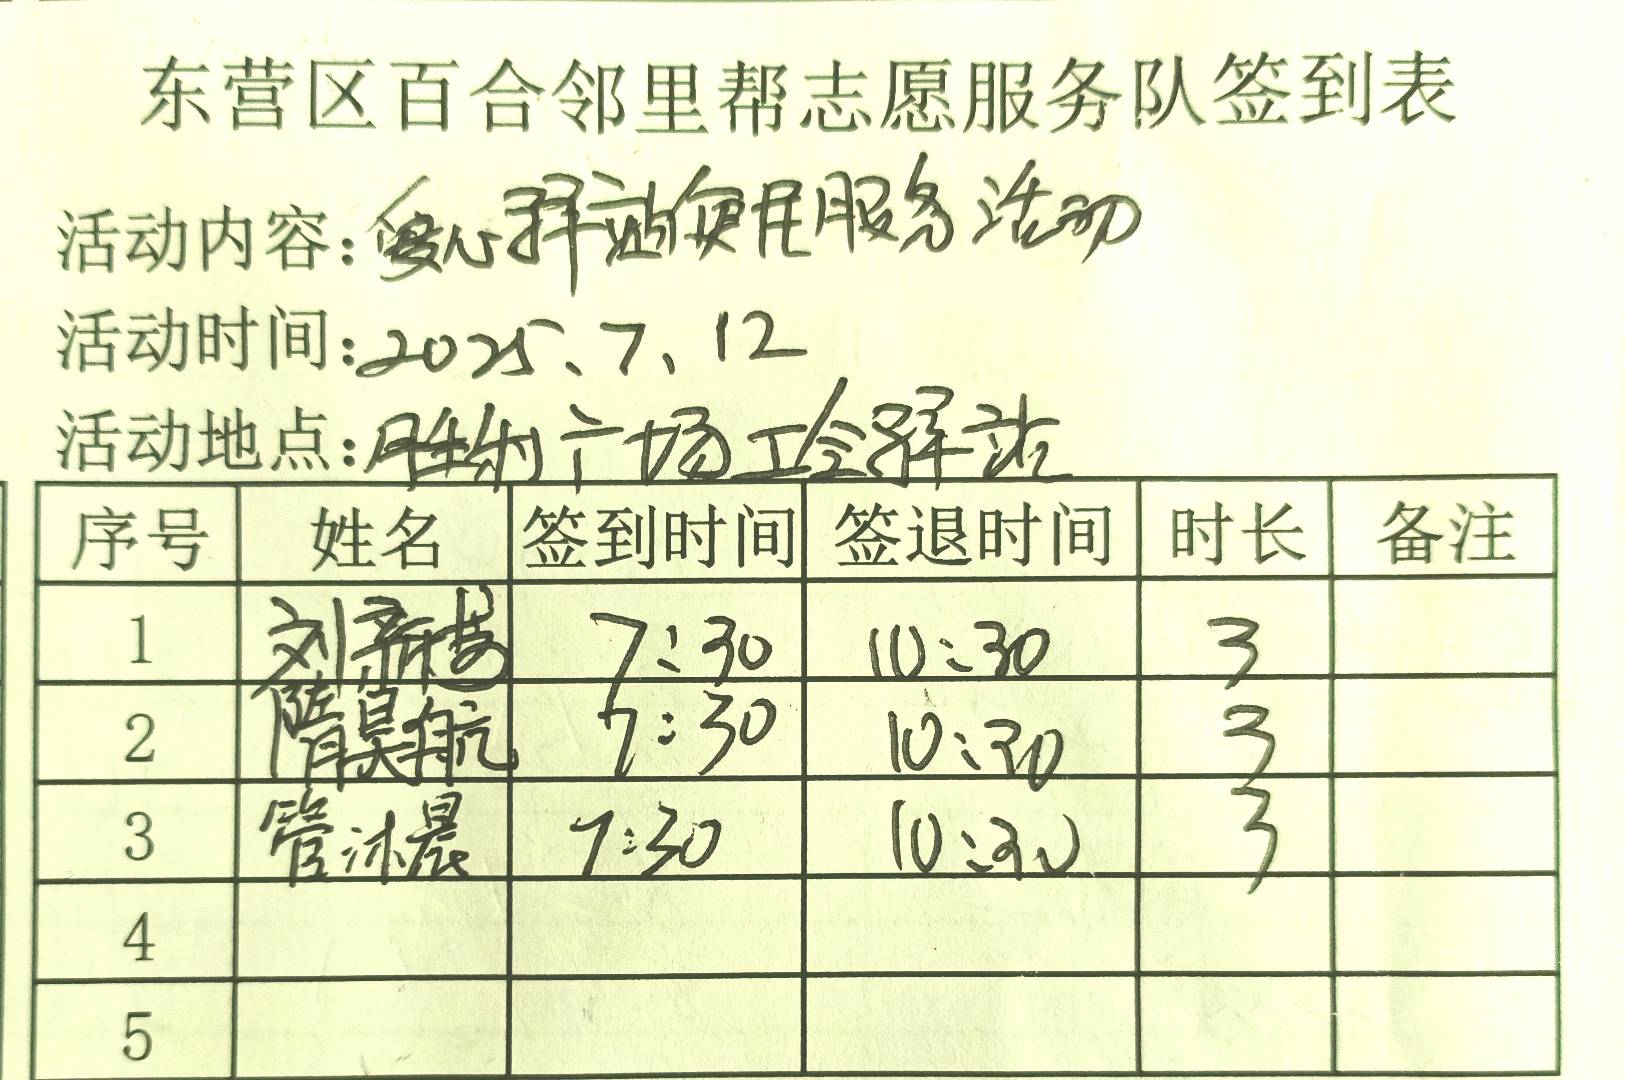 东营区百合邻里帮志愿服务队签到表
活动内容:爱心驿站便民服务活动
活动时间:2025、7、12
活动地点:胜利广场工会驿站
序号 姓名 签到时间 签退时间 时长 备注
1 刘 7:30 10:30 3
2 隋昊航 7:30 10:30 3
3 管沐晨 7:30 10:30 3
4
5